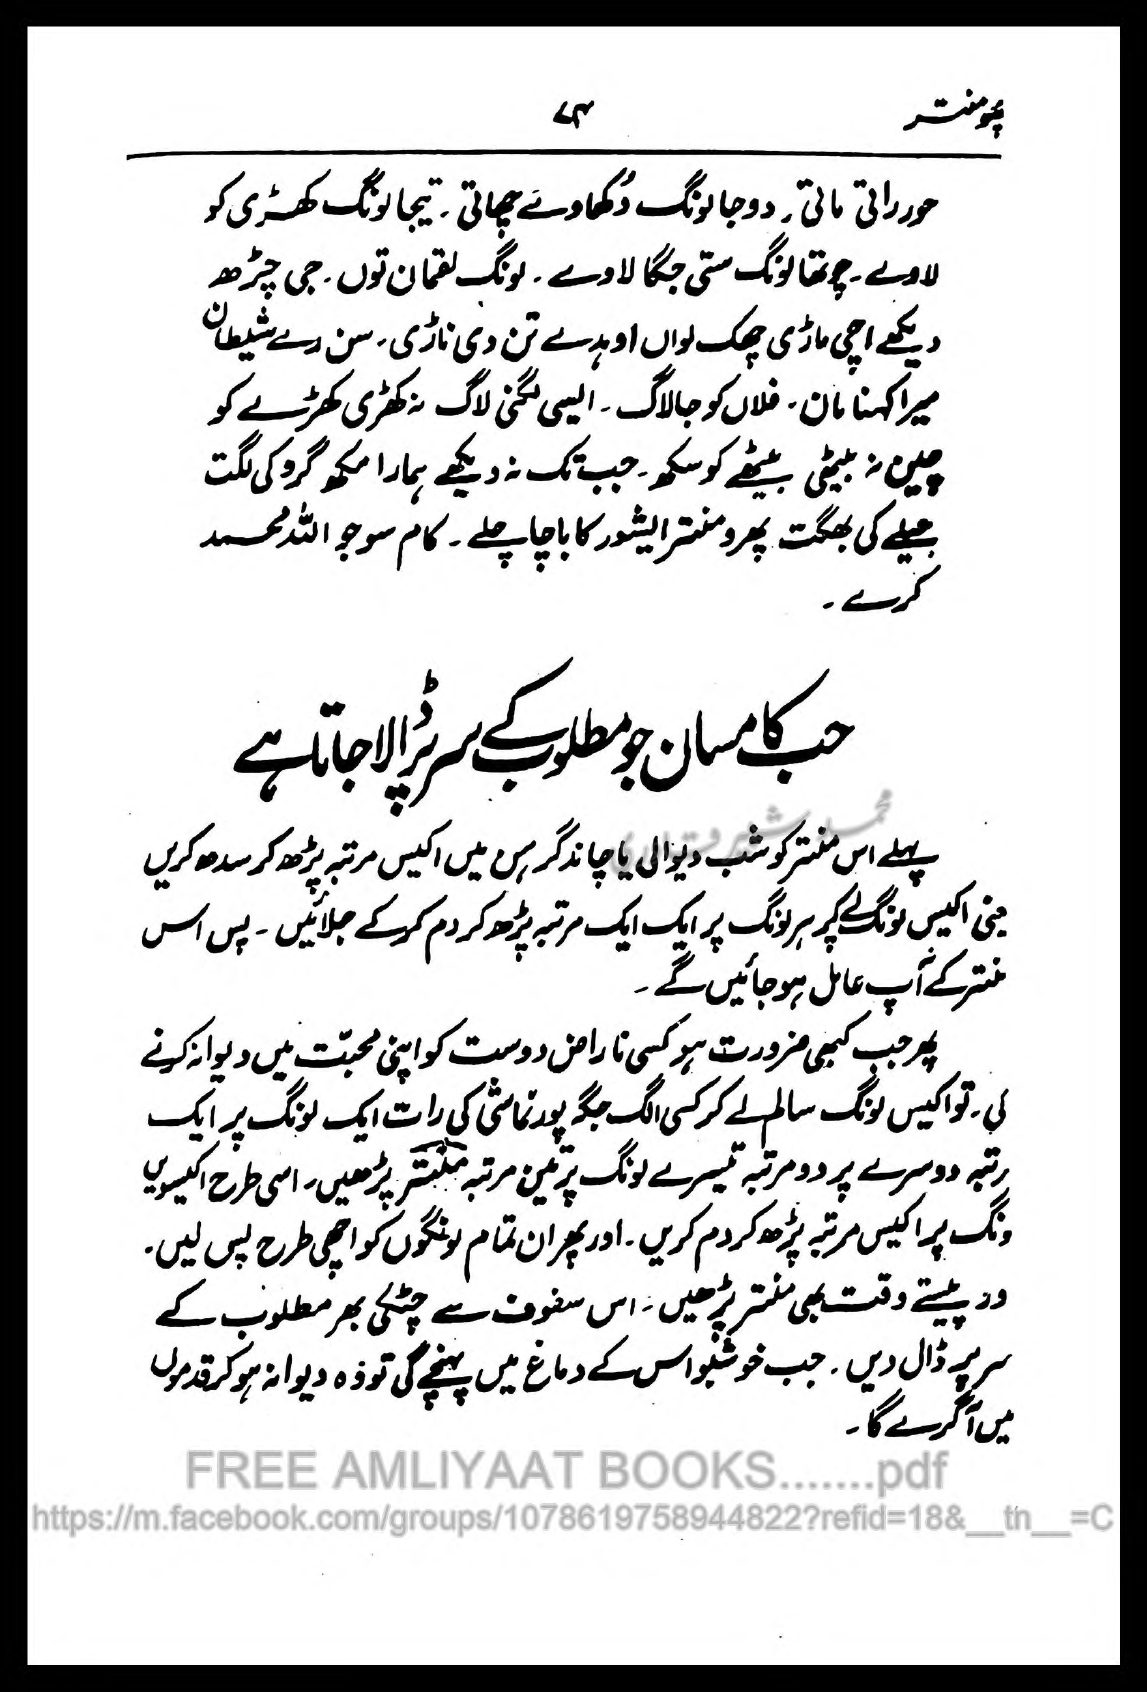 چھومنتر ۷۴
حور راتی ماتی۔ دوجا لونگ دُکھاوے چھاتی۔ تیجا لونگ کھڑی کو
لاوے۔ چوتھا لونگ ستی جگا لاوے۔ لونگ لقمان توں۔ جی چڑھ
دیکھے اچی ماڑی چھک لواں اوہدے تن دی ناڑی۔ سن رے شیطان
میرا کہنا مان۔ فلاں کو جا لاگ۔ ایسی لگنی لاگ نہ کھڑی کھڑے کو
چین نہ بیٹھی بیٹھے کو سکھ۔ جب تک نہ دیکھے ہمارا مکھ گرو کی لگت
چیلے کی بھگت پھرو منتر ایشور کا باچا چلے۔ کام سو جو اللہ محمد
کرے۔
حب کا مسان جو مطلوب کے سر پر ڈالا جاتا ہے
پہلے اس منتر کو شب دیوالی یا چاند گرہن میں اکیس مرتبہ پڑھ کر سدھ کریں
ینی اکیس لونگ لے کر ہر لونگ پر ایک ایک مرتبہ پڑھ کر دم کر کے جلائیں۔ پس اس
منتر کے آپ عامل ہو جائیں گے۔
پھر جب کبھی ضرورت ہو کسی ناراض دوست کو اپنی محبّت میں دیوانہ کرنے
کی۔ تو اکیس لونگ سالم لے کر کسی الگ جگہ پورنماشی کی رات ایک لونگ پر ایک
رتبہ دوسرے پر دو مرتبہ تیسرے لونگ پر تین مرتبہ منتر پڑھیں۔ اسی طرح اکیسویں
ونگ پر اکیس مرتبہ پڑھ کر دم کریں۔ اور پھر ان تمام لونگوں کو اچھی طرح پس لیں۔
ور پیستے وقت بھی منتر پڑھیں۔ اس سفوف سے چٹکی بھر مطلوب کے
سر پر ڈال دیں۔ جب خوشبو اس کے دماغ میں پہنچے گی تو وہ دیوانہ ہو کر قدموں
میں آ گرے گا۔
FREE AMLIYAAT BOOKS.......pdf
https://m.facebook.com/groups/1078619758944822?refid=18&__tn__=C